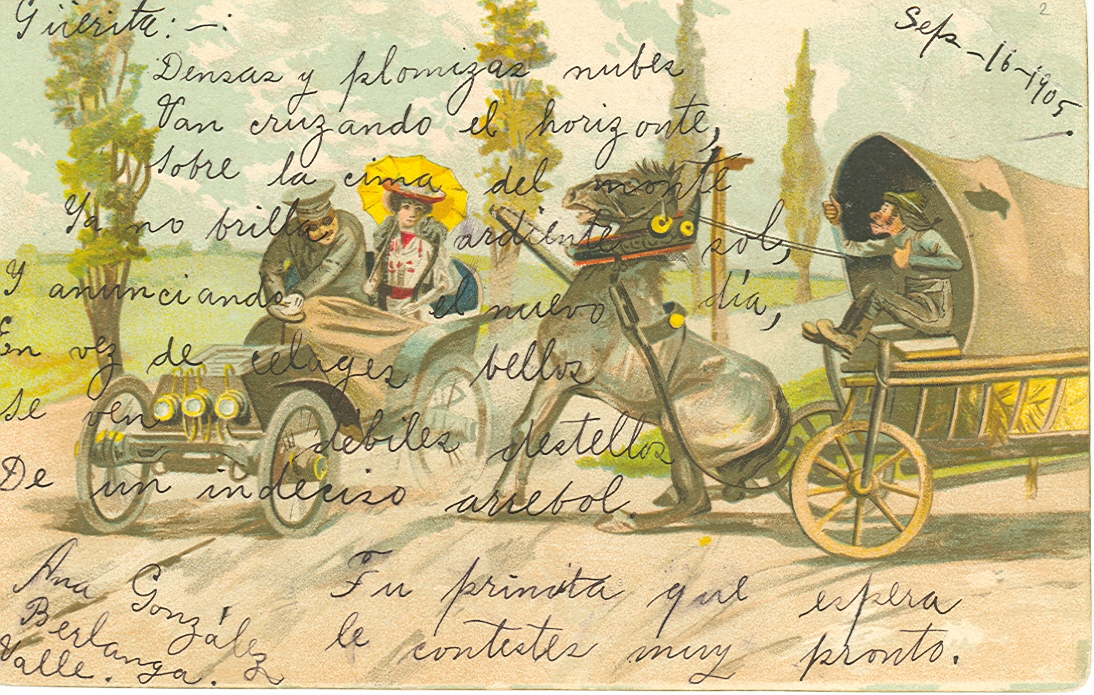 Güerita: -.
Sep-16-1905.
2
Densas y plomizas nubes
Van cruzando el horizonte,
Sobre la cima del monte
Ya no brilla ardiente sol,
Y anunciando el nuevo día,
En vez de celages bellos
Se ven débiles destellos
De un indeciso arrebol.
Tu primita que espera
le contestes muy pronto.
Ana González
Berlanga.
Valle. ga.